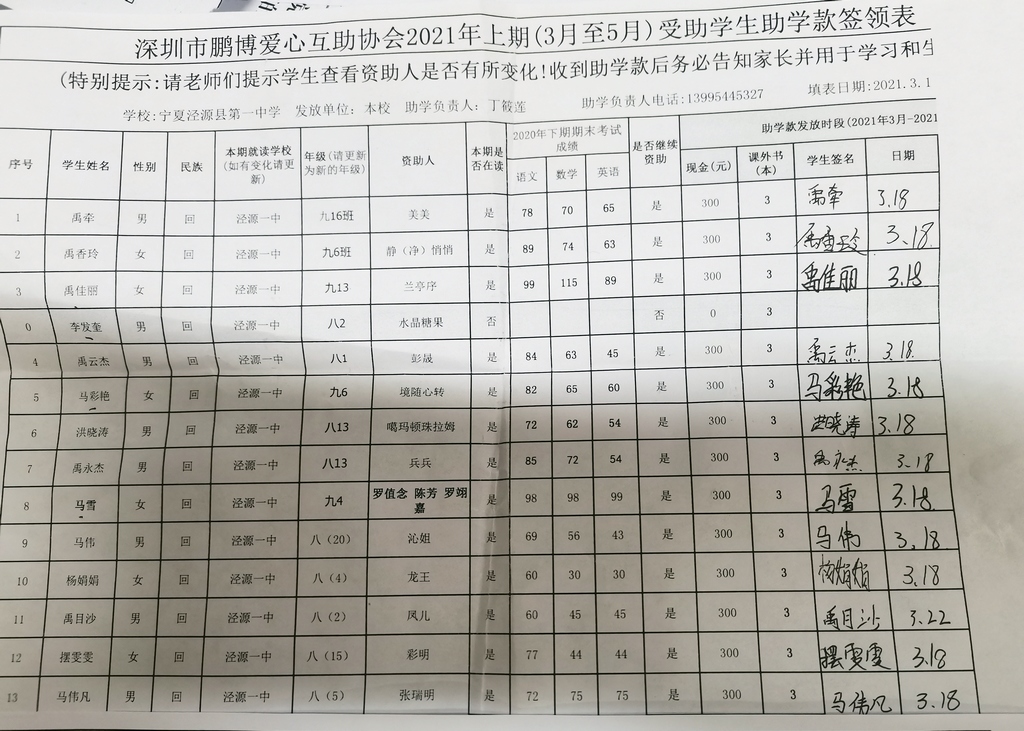 深圳市鹏博爱心互助协会2021年上期(3月至5月)受助学生助学款签领表
(特别提示:请老师们提示学生查看资助人是否有所变化!收到助学款后务必告知家长并用于学习和生
学校:宁夏泾源县第一中学 发放单位: 本校 助学负责人: 丁筱莲 助学负责人电话:13995445327 填表日期:2021.3.1
序号 学生姓名 性别 民族 本期就读学校(如有变化请更新) 年级(请更新为新的年级) 资助人 本期是否在读 2020年下期期末考试成绩 语文 数学 英语 是否继续资助 助学款发放时段(2021年3月-2021 现金(元) 课外书(本) 学生签名 日期
1 禹牵 男 回 泾源一中 九16班 美美 是 78 70 65 是 300 3 禹牵 3.18
2 禹香玲 女 回 泾源一中 九6班 静(净)悄悄 是 89 74 63 是 300 3 禹香玲 3.18
3 禹佳丽 女 回 泾源一中 九13 兰亭序 是 99 115 89 是 300 3 禹佳丽 3.18
0 李发奎 男 回 泾源一中 八2 水晶糖果 否 否 0 3
4 禹云杰 男 回 泾源一中 八1 彭晟 是 84 63 45 是 300 3 禹云杰 3.18
5 马彩艳 女 回 泾源一中 九6 境随心转 是 82 65 60 是 300 3 马彩艳 3.18
6 洪晓涛 男 回 泾源一中 八13 噶玛顿珠拉姆 是 72 62 54 是 300 3 洪晓涛 3.18
7 禹永杰 男 回 泾源一中 八13 兵兵 是 85 72 54 是 300 3 禹永杰 3.18
8 马雪 女 回 泾源一中 九4 罗值念 陈芳 罗翊嘉 是 98 98 99 是 300 3 马雪 3.18
9 马伟 男 回 泾源一中 八(20) 沁姐 是 69 56 43 是 300 3 马伟 3.18
10 杨娟娟 女 回 泾源一中 八(4) 龙王 是 60 30 30 是 300 3 杨娟娟 3.18
11 禹目沙 男 回 泾源一中 八(2) 凤儿 是 60 45 45 是 300 3 禹目沙 3.22
12 摆雯雯 女 回 泾源一中 八(15) 彩明 是 77 44 44 是 300 3 摆雯雯 3.18
13 马伟凡 男 回 泾源一中 八(5) 张瑞明 是 72 75 75 是 300 3 马伟凡 3.18